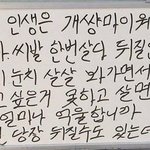 인생은 개썅마이웨
. 씨발 한번살다 뒤질인
 눈치 살살 봐가면서
고 싶은거 못하고 살면
얼마나 억울합니까
 당장 뒤질수도 있는데